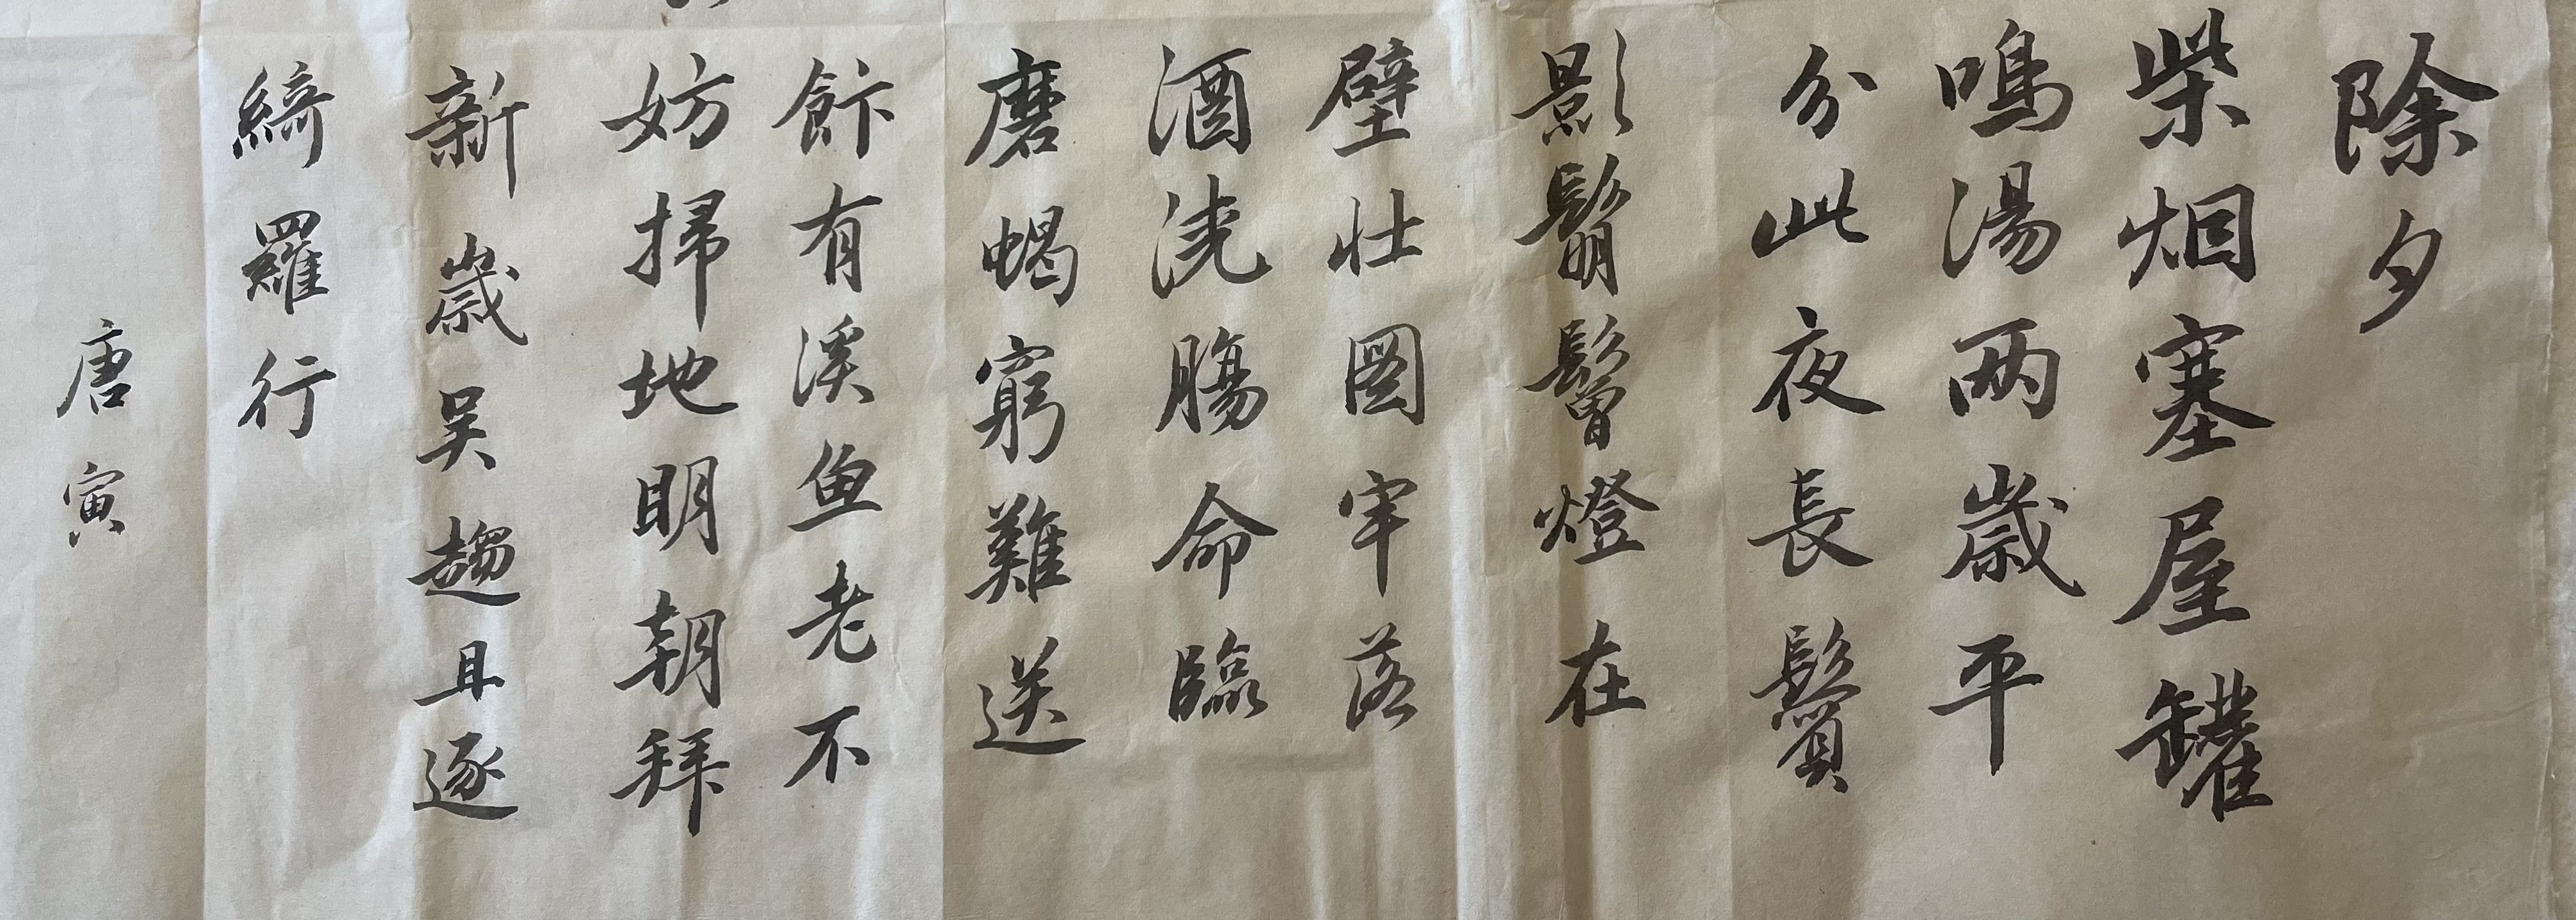 除夕
柴烟塞屋罐
鳴湯两歲平
分此夜長鬢
影鬅鬙燈在
壁壮圖牢落
酒澆腸命臨
磨蝎窮難送
飰有溪鱼老不
妨掃地明朝拜
新歲吴趨且逐
綺羅行
唐寅